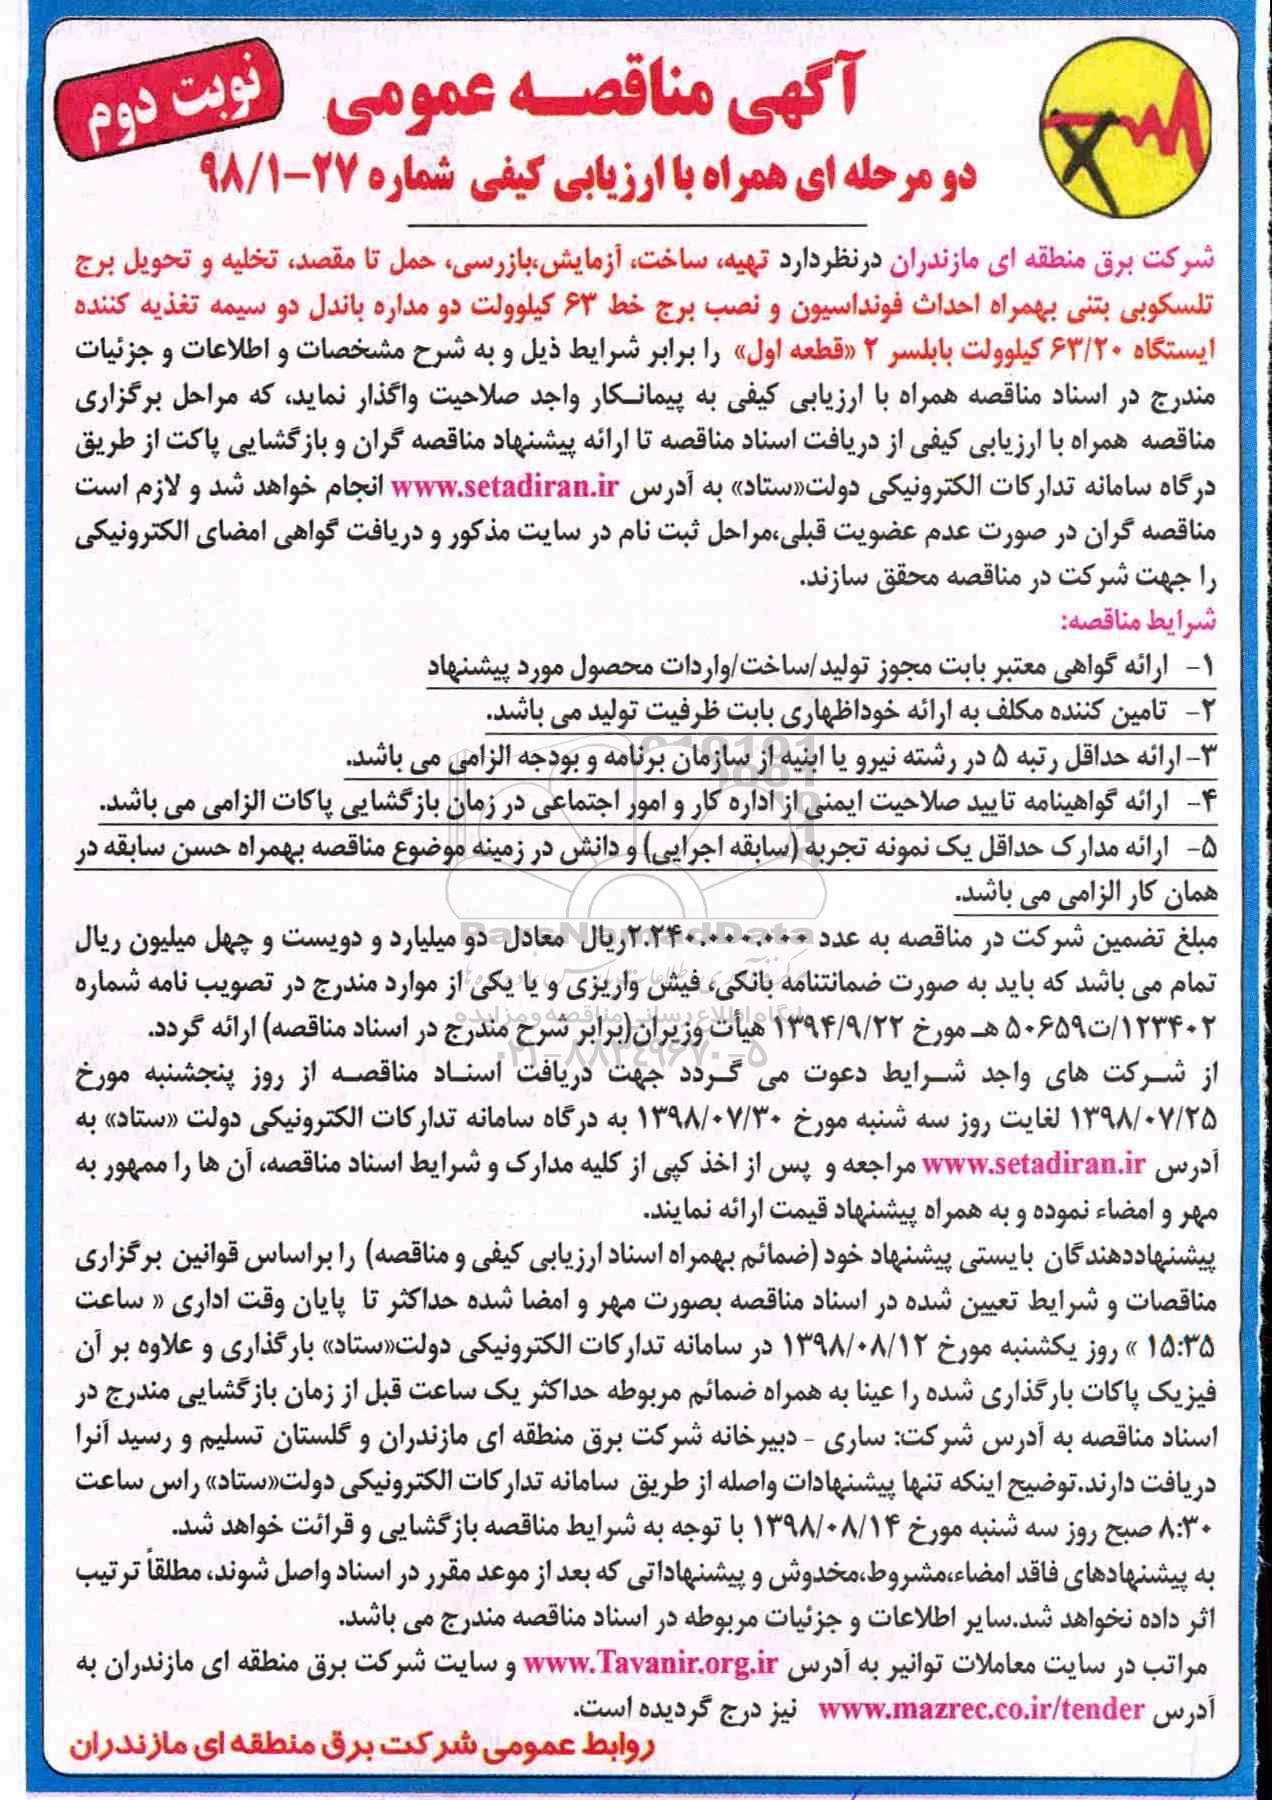 آگهی مناقصه عمومی
نوبت دوم
دو مرحله ای همراه با ارزیابی کیفی شماره ۲۷-۹۸/۱
شرکت برق منطقه ای مازندران درنظردارد تهیه، ساخت، آزمایش،بازرسی، حمل تا مقصد، تخلیه و تحویل برج
تلسکوپی بتنی بهمراه احداث فونداسیون و نصب برج خط ۶۳ کیلوولت دو مداره باندل دو سیمه تغذیه کننده
ایستگاه ۶۳/۲۰ کیلوولت بابلسر ۲ «قطعه اول» را برابر شرایط ذیل و به شرح مشخصات و اطلاعات و جزئیات
مندرج در اسناد مناقصه همراه با ارزیابی کیفی به پیمانکار واجد صلاحیت واگذار نماید، که مراحل برگزاری
مناقصه همراه با ارزیابی کیفی از دریافت اسناد مناقصه تا ارائه پیشنهاد مناقصه گران و بازگشایی پاکت از طریق
درگاه سامانه تدارکات الکترونیکی دولت«ستاد» به آدرس www.setadiran.ir انجام خواهد شد و لازم است
مناقصه گران در صورت عدم عضویت قبلی،مراحل ثبت نام در سایت مذکور و دریافت گواهی امضای الکترونیکی
را جهت شرکت در مناقصه محقق سازند.
شرایط مناقصه:
۱- ارائه گواهی معتبر بابت مجوز تولید/ساخت/واردات محصول مورد پیشنهاد
۲- تامین کننده مکلف به ارائه خوداظهاری بابت ظرفیت تولید می باشد.
۳- ارائه حداقل رتبه ۵ در رشته نیرو یا ابنیه از سازمان برنامه و بودجه الزامی می باشد.
۴- ارائه گواهینامه تایید صلاحیت ایمنی از اداره کار و امور اجتماعی در زمان بازگشایی پاکات الزامی می باشد.
۵- ارائه مدارک حداقل یک نمونه تجربه (سابقه اجرایی) و دانش در زمینه موضوع مناقصه بهمراه حسن سابقه در
همان کار الزامی می باشد.
مبلغ تضمین شرکت در مناقصه به عدد ۲.۲۴۰.۰۰۰.۰۰۰ریال معادل دو میلیارد و دویست و چهل میلیون ریال
تمام می باشد که باید به صورت ضمانتنامه بانکی، فیش واریزی و یا یکی از موارد مندرج در تصویب نامه شماره
۱۲۳۴۰۲/ت۵۰۶۵۹ هـ مورخ ۱۳۹۴/۹/۲۲ هیأت وزیران(برابر شرح مندرج در اسناد مناقصه) ارائه گردد.
از شرکت های واجد شرایط دعوت می گردد جهت دریافت اسناد مناقصه از روز پنجشنبه مورخ
۱۳۹۸/۰۷/۲۵ لغایت روز سه شنبه مورخ ۱۳۹۸/۰۷/۳۰ به درگاه سامانه تدارکات الکترونیکی دولت «ستاد» به
آدرس www.setadiran.ir مراجعه و پس از اخذ کپی از کلیه مدارک و شرایط اسناد مناقصه، آن ها را ممهور به
مهر و امضاء نموده و به همراه پیشنهاد قیمت ارائه نمایند.
پیشنهاددهندگان بایستی پیشنهاد خود (ضمائم بهمراه اسناد ارزیابی کیفی و مناقصه) را براساس قوانین برگزاری
مناقصات و شرایط تعیین شده در اسناد مناقصه بصورت مهر و امضا شده حداکثر تا پایان وقت اداری « ساعت
۱۵:۳۵ » روز یکشنبه مورخ ۱۳۹۸/۰۸/۱۲ در سامانه تدارکات الکترونیکی دولت«ستاد» بارگذاری و علاوه بر آن
فیزیک پاکات بارگذاری شده را عینا به همراه ضمائم مربوطه حداکثر یک ساعت قبل از زمان بازگشایی مندرج در
اسناد مناقصه به آدرس شرکت: ساری - دبیرخانه شرکت برق منطقه ای مازندران و گلستان تسلیم و رسید آنرا
دریافت دارند.توضیح اینکه تنها پیشنهادات واصله از طریق سامانه تدارکات الکترونیکی دولت«ستاد» راس ساعت
۸:۳۰ صبح روز سه شنبه مورخ ۱۳۹۸/۰۸/۱۴ با توجه به شرایط مناقصه بازگشایی و قرائت خواهد شد.
به پیشنهادهای فاقد امضاء،مشروط،مخدوش و پیشنهاداتی که بعد از موعد مقرر در اسناد واصل شوند، مطلقاً ترتیب
اثر داده نخواهد شد.سایر اطلاعات و جزئیات مربوطه در اسناد مناقصه مندرج می باشد.
مراتب در سایت معاملات توانیر به آدرس www.Tavanir.org.ir و سایت شرکت برق منطقه ای مازندران به
آدرس www.mazrec.co.ir/tender نیز درج گردیده است.
روابط عمومی شرکت برق منطقه ای مازندران
ParsNamadData
پایگاه اطلاع رسانی مناقصه و مزایده
۰۲۱-۸۸۳۴۹۶۷۰-۵